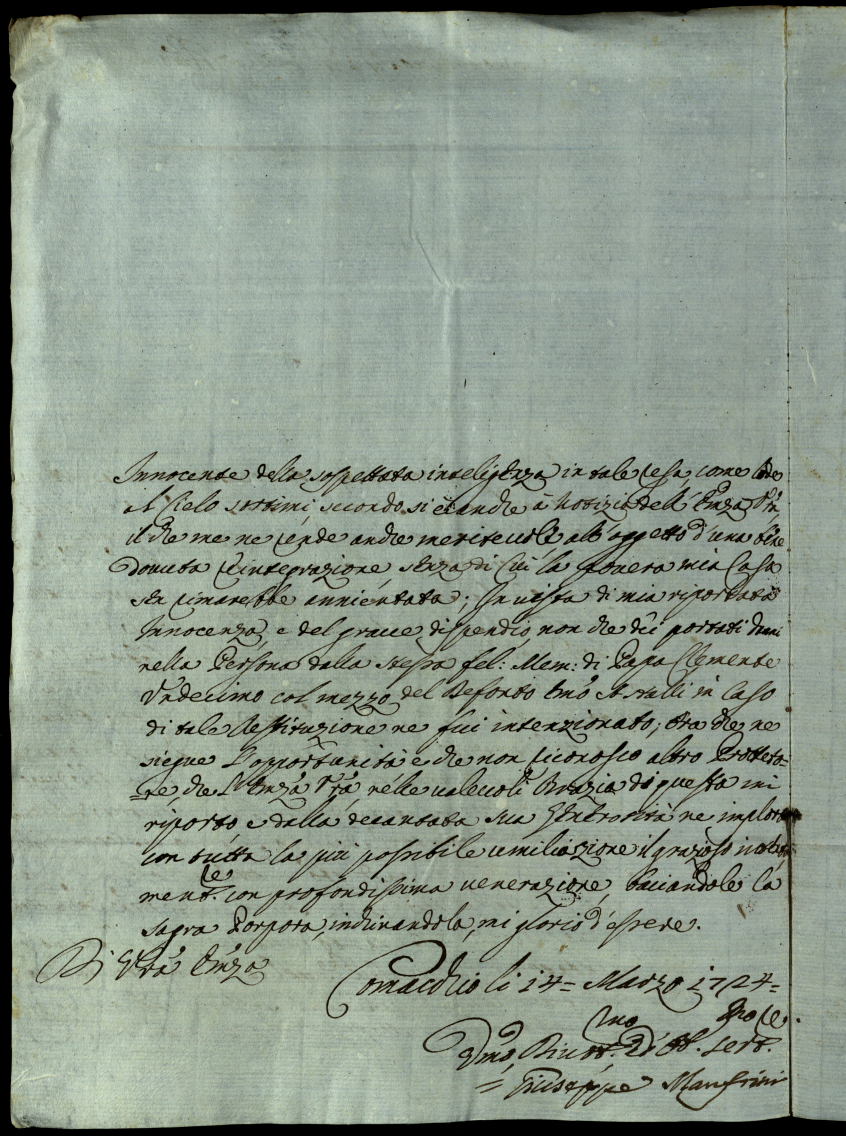 Innocente della sospettata inteligenza in tale cosa, come
al Cielo secondo si è anche à notizia dell' Emza Vra
il che me ne rende anche meritevole all' oggetto d'una
douuta reintegrazione senza di cui la pouera mia Casa
sen rimarebbe annientata; In uista di mia riportata
Innocenza, e del graue dispendio, non che portati
nella Persona dalla stessa fel: Mem: di Papa Clemente
Vndecimo col mezzo del Defonto Emo Astalli in caso
di tale Restituzione ne fui intenzionato; Ora che ne
siegue l'opportunità e che non riconosco altro Protteto=
=re che l'Emza Vra nelle ualeuoli Grazia di questa mi
riporto e dalla decantata sua Generosità ne imploro
con tutta la più possibile umiliazione il grazioso
ment.e con profondissima uenerazione, baciandole la
sagra Porpora, inchinandola, mi glorio d'essere.
Di Vra Emza
Comacchio li 14= Marzo 1724=
Vmo, Diuot.mo Obb. Seru.re
= Giuseppe Manfrini